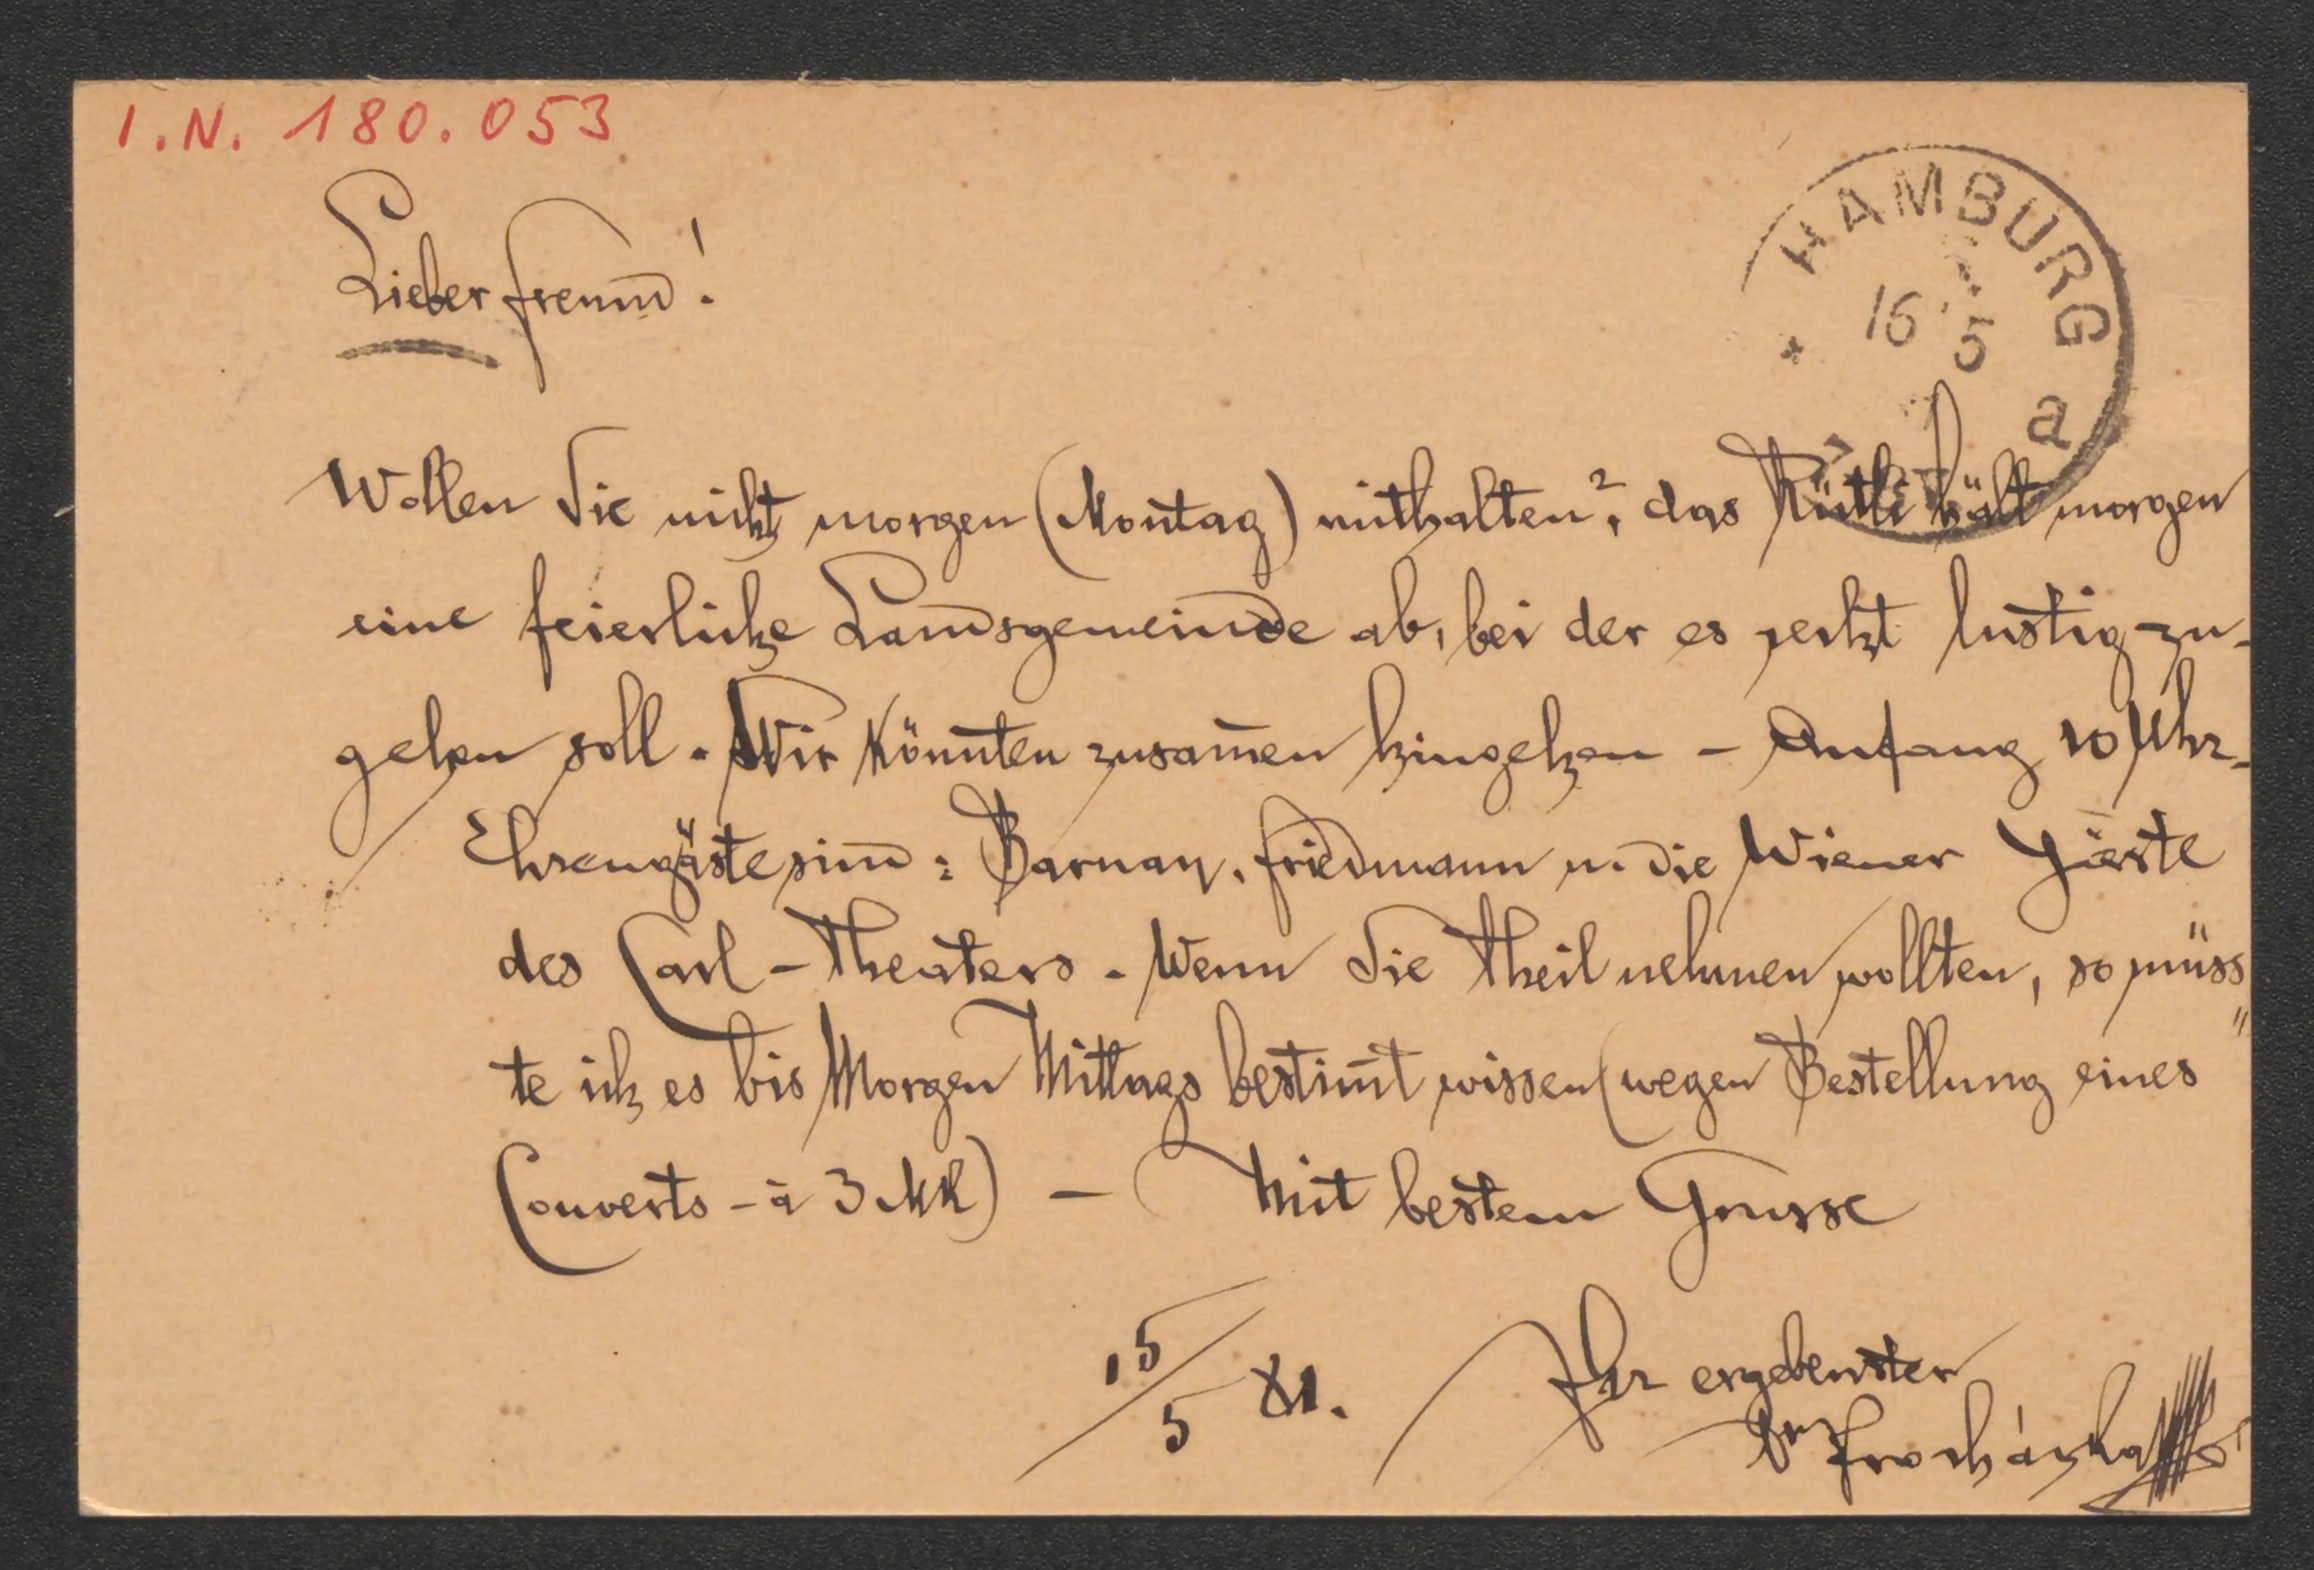 I.N. 180.053
HAMBURG
16 5
a
Lieber Freund!
Wollen Sie nicht morgen (Montag) mithalten?, das Rütli hält morgen
eine feierliche Landsgemeinde ab, bei der es recht lustig zu-
gehen soll. Wir könnten zusam̄en hingehen – Anfang 10 Uhr –
Ehrengäste sind: Barnay, Friedmann u. die Wiener Gäste
des Carl-Theaters. Wenn Sie Theil nehmen wollten, so müss
te ich es bis Morgen Mittags bestim̄t wissen (wegen Bestellung eines
Couverts – à 3 Mk) – Mit bestem Grusse
15/5 81. Ihr ergebenster
Dr Procházka